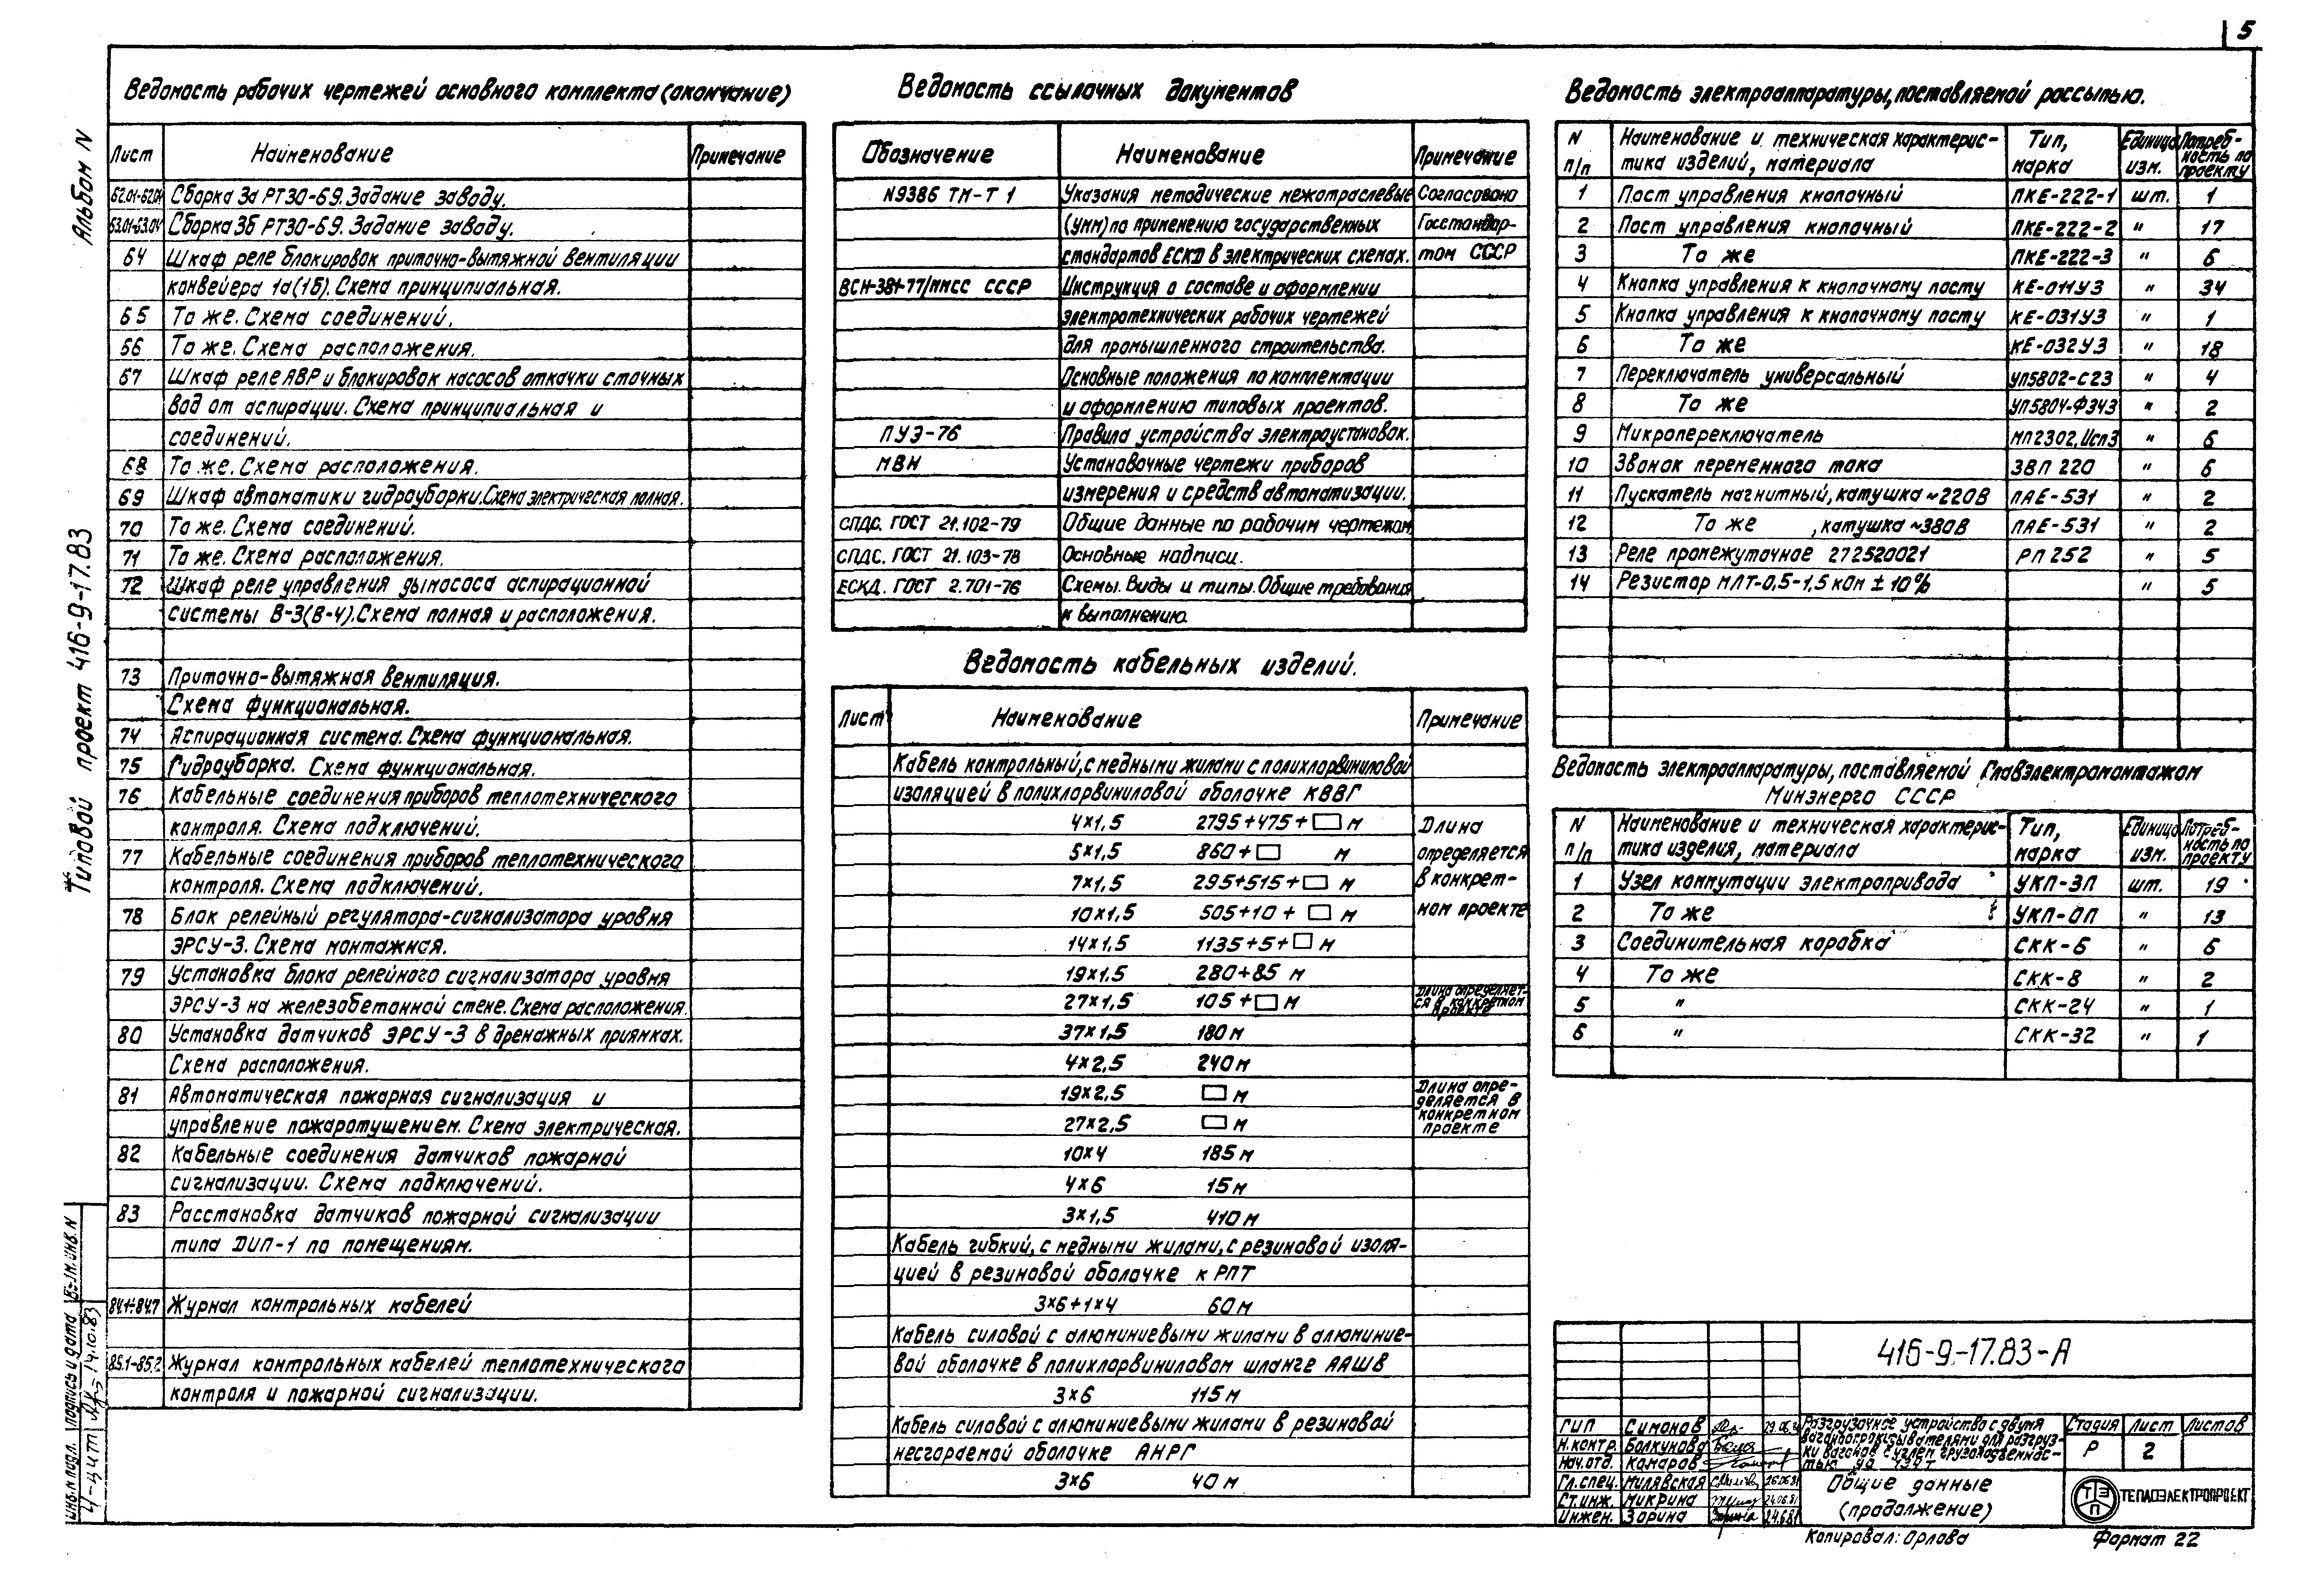 5
Альбом IV
Типовой проект 416-9-17.83
Ведомость рабочих чертежей основного комплекта (окончание)
Лист Наименование Примечание
62.01-62.04 Сборка 3а РТ30-69. Задание заводу.
63.01-63.04 Сборка 3б РТ30-69. Задание заводу.
64 Шкаф реле блокировок приточно-вытяжной вентиляции
конвейера 1а(1б). Схема принципиальная.
65 То же. Схема соединений.
66 То же. Схема расположения.
67 Шкаф реле АВР и блокировок насосов откачки сточных
вод от аспирации. Схема принципиальная и
соединений.
68 То же. Схема расположения.
69 Шкаф автоматики гидроуборки. Схема электрическая полная.
70 То же. Схема соединений.
71 То же. Схема расположения.
72 Шкаф реле управления дымососа аспирационной
системы В-3(В-4). Схема полная и расположения.
73 Приточно-вытяжная вентиляция.
Схема функциональная.
74 Аспирационная система. Схема функциональная.
75 Гидроуборка. Схема функциональная.
76 Кабельные соединения приборов теплотехнического
контроля. Схема подключений.
77 Кабельные соединения приборов теплотехнического
контроля. Схема подключений.
78 Блок релейный регулятора-сигнализатора уровня
ЭРСУ-3. Схема монтажная.
79 Установка блока релейного сигнализатора уровня
ЭРСУ-3 на железобетонной стене. Схема расположения
80 Установка датчиков ЭРСУ-3 в дренажных приямках.
Схема расположения.
81 Автоматическая пожарная сигнализация и
управление пожаротушением. Схема электрическая.
82 Кабельные соединения датчиков пожарной
сигнализации. Схема подключений.
83 Расстановка датчиков пожарной сигнализации
типа ДИП-1 по помещениям.
84.1-84.7 Журнал контрольных кабелей
85.1-85.2 Журнал контрольных кабелей теплотехнического
контроля и пожарной сигнализации.
Ведомость ссылочных документов
Обозначение Наименование Примечание
N9386 ТМ-Т 1 Указания методические межотраслевые Согласовано
(УММ) по применению государственных Госстандар-
стандартов ЕСКД в электрических схемах. том СССР
ВСН-381-77/ММСС СССР Инструкция о составе и оформлении
электротехнических рабочих чертежей
для промышленного строительства.
Основные положения по комплектации
и оформлению типовых проектов.
ПУЭ-76 Правила устройства электроустановок.
МВН Установочные чертежи приборов
измерения и средств автоматизации.
СПДС. ГОСТ 21.102-79 Общие данные по рабочим чертежам
СПДС. ГОСТ 21.103-78 Основные надписи.
ЕСКД. ГОСТ 2.701-76 Схемы. Виды и типы. Общие требования
к выполнению.
Ведомость кабельных изделий.
Лист Наименование Примечание
Кабель контрольный, с медными жилами с полихлорвиниловой
изоляцией в полихлорвиниловой оболочке КВВГ
4×1,5 2795+475+□ м Длина
5×1,5 860+□ м определяется
7×1,5 295+515+□ м в конкрет-
10×1,5 505+10+□ м ном проекте
14×1,5 1135+5+□ м
19×1,5 280+85 м
27×1,5 105+□ м Длина определяет-
ся в конкретном
проекте
37×1,5 180 м
4×2,5 240 м
19×2,5 □ м Длина опре-
деляется в
27×2,5 □ м конкретном
проекте
10×4 185 м
4×6 15 м
3×1,5 410 м
Кабель гибкий, с медными жилами, с резиновой изоля-
цией в резиновой оболочке КРПТ
3×6+1×4 60 м
Кабель силовой с алюминиевыми жилами в алюминие-
вой оболочке в полихлорвиниловом шланге ААШВ
3×6 115 м
Кабель силовой с алюминиевыми жилами в резиновой
несгораемой оболочке АНРГ
3×6 40 м
Ведомость электроаппаратуры, поставляемой россыпью.
N п/п Наименование и техническая характерис-тика изделий, материала Тип, марка Единица изм. Потреб-ность по проекту
1 Пост управления кнопочный ПКЕ-222-1 шт. 1
2 Пост управления кнопочный ПКЕ-222-2 " 17
3 То же ПКЕ-222-3 " 6
4 Кнопка управления к кнопочному посту КЕ-011У3 " 34
5 Кнопка управления к кнопочному посту КЕ-031У3 " 1
6 То же КЕ-032У3 " 18
7 Переключатель универсальный УП5802-С23 " 4
8 То же УП5804-Ф343 " 2
9 Микропереключатель МП2302, Исп3 " 6
10 Звонок переменного тока ЗВП 220 " 6
11 Пускатель магнитный, катушка ~220В ПАЕ-531 " 2
12 То же , катушка ~380В ПАЕ-531 " 2
13 Реле промежуточное 272520021 РП 252 " 5
14 Резистор МЛТ-0,5-1,5 ком ± 10% " 5
Ведомость электроаппаратуры, поставляемой Главэлектромонтажом
Минэнерго СССР
N п/п Наименование и техническая характерис-тика изделия, материала Тип, марка Единица изм. Потреб-ность по проекту
1 Узел коммутации электропривода УКП-ЗП шт. 19
2 То же УКП-ОП " 13
3 Соединительная коробка СКК-6 " 6
4 То же СКК-8 " 2
5 " СКК-24 " 1
6 " СКК-32 " 1
416-9-17.83-А
ГИП Симонов 29.06.81
Н.контр. Болкунова
Нач.отд. Комаров
Гл.спец. Милявская 26.06.81
Ст.инж. Микрина 24.06.81
Инжен. Зорина 24.6.81
Разгрузочное устройство с двумя
вагоноопрокидывателями для разгруз-
ки вагонов с углем грузоподъемнос-
тью до 134т
Стадия Лист Листов
Р 2
Общие данные
(продолжение)
ТЭП
ТЕПЛОЭЛЕКТРОПРОЕКТ
Копировал: Орлова
Формат 22
Инв.N подл. Подпись и дата Вз.им.инв.N
14.10.83